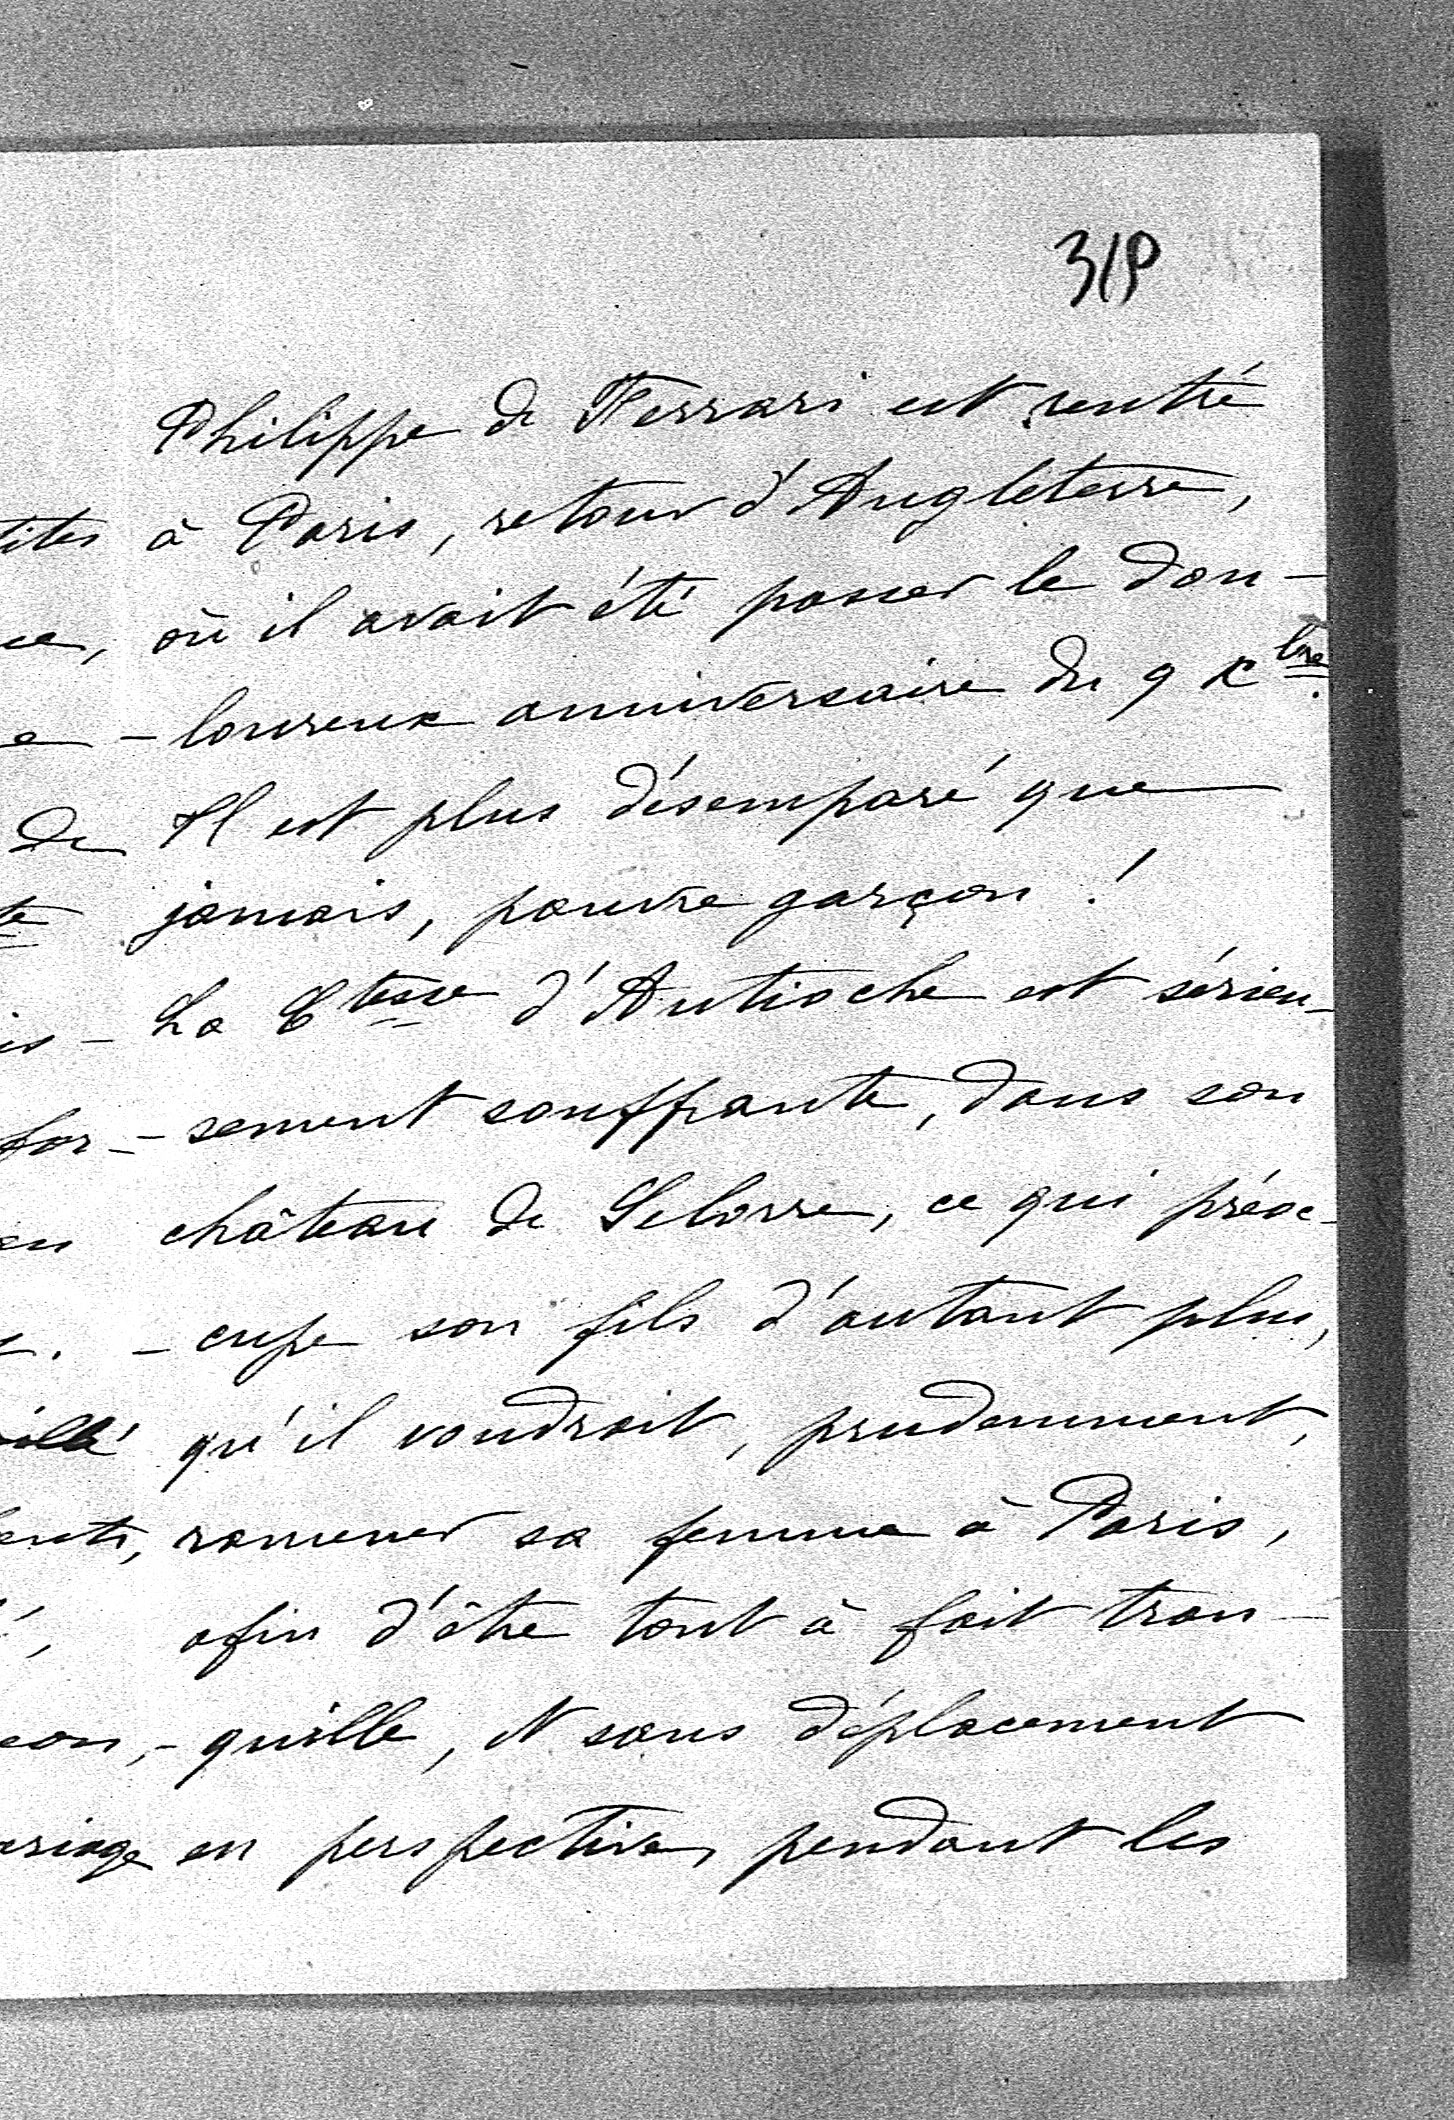 318
Philippe de Ferrari est rentré
à Paris, retour d'Angleterre,
où il avait été passer le dou-
-loureux anniversaire du 9 Xbre.
Il est plus désemparé que
jamais, pauvre garçon !
La Ctesse d'Antioche est sérieu-
-sement souffrante, dans son
château de Selorre, ce qui préoc-
-cupe son fils d'autant plus,
qu'il voudrait, prudemment,
ramener sa femme à Paris,
afin d'être tout à fait tran-
-quille, et sans déplacement
en perspective, pendant les